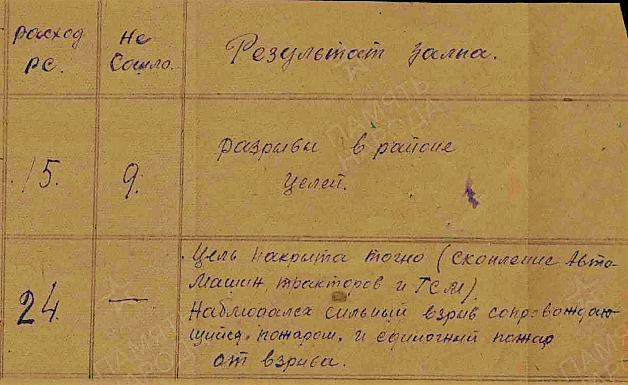 Расход РС.
Не Сошло.
Результат залпа.
15.
9.
разрывы в районе
целей.
24.
—
Цель накрыта точно (скопление Авто-
Машин тракторов и ГСМ)
Наблюдался сильный взрыв сопровождаю-
щийся пожаром, и одиночный пожар
от взрыва.
ПАМЯТЬ
НАРОДА